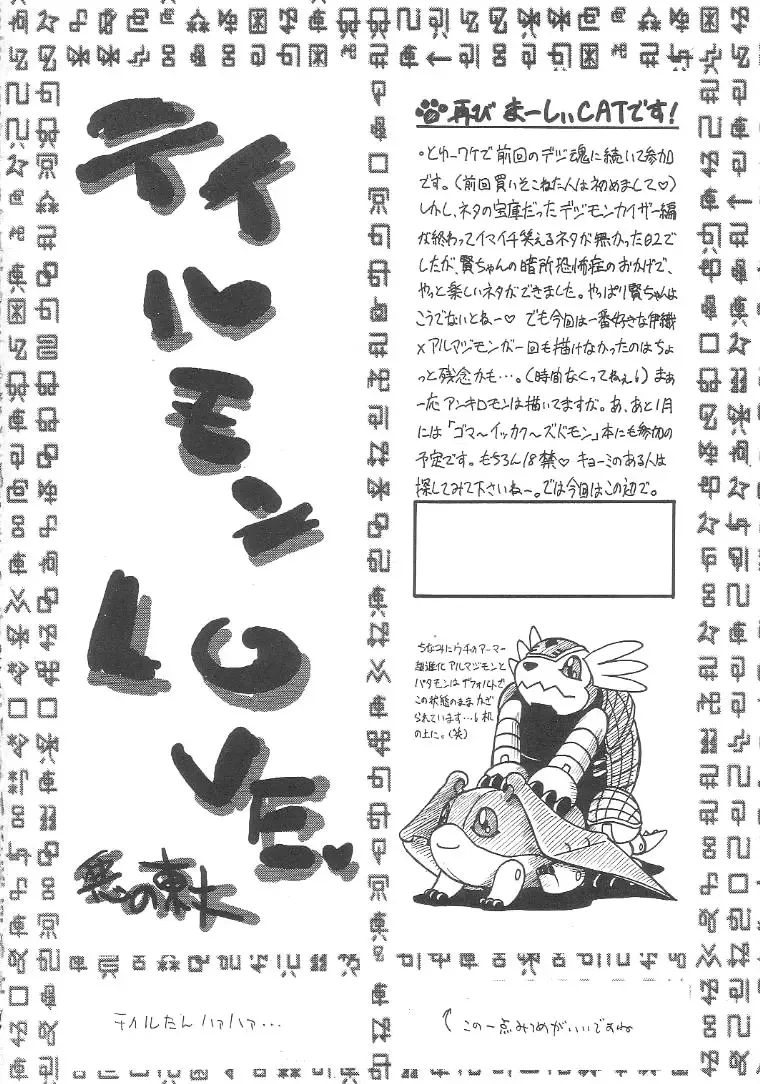 テイルモン
LOVE.♥
悪の東大
テイルたんハァハァ…
再び まーしぃCATです!
・とゆーワケで前回のデジ魂に続いて参加
です。(前回買いそこねた人は初めまして♡)
しかし、ネタの宝庫だったデジモンカイザー編
が終わってイマイチ笑えるネタが無かった02で
したが、賢ちゃんの暗所恐怖症のおかげで、
やっと楽しいネタができました。やっぱり賢ちゃんは
こうでないとねー♡ でも今回は一番好きな伊織
×アルマジモンが一回も描けなかったのはちょ
っと残念かも…。(時間なくってねぇ) まぁ
一応 アンキロモンは描いてますが。あ、あと1月
には「ゴマ〜イッカク〜ズドモン」本にも参加の
予定です。もちろん18禁♡ キョーミのある人は
探してみて下さいねー。では今回はこの辺で。
ちなみにウチのアーマー
超進化アルマジモンと
パタモンはデフォルトで
この状態のままかざ
られています…机
の上に。(笑)
↑この一点みつめがいいですね